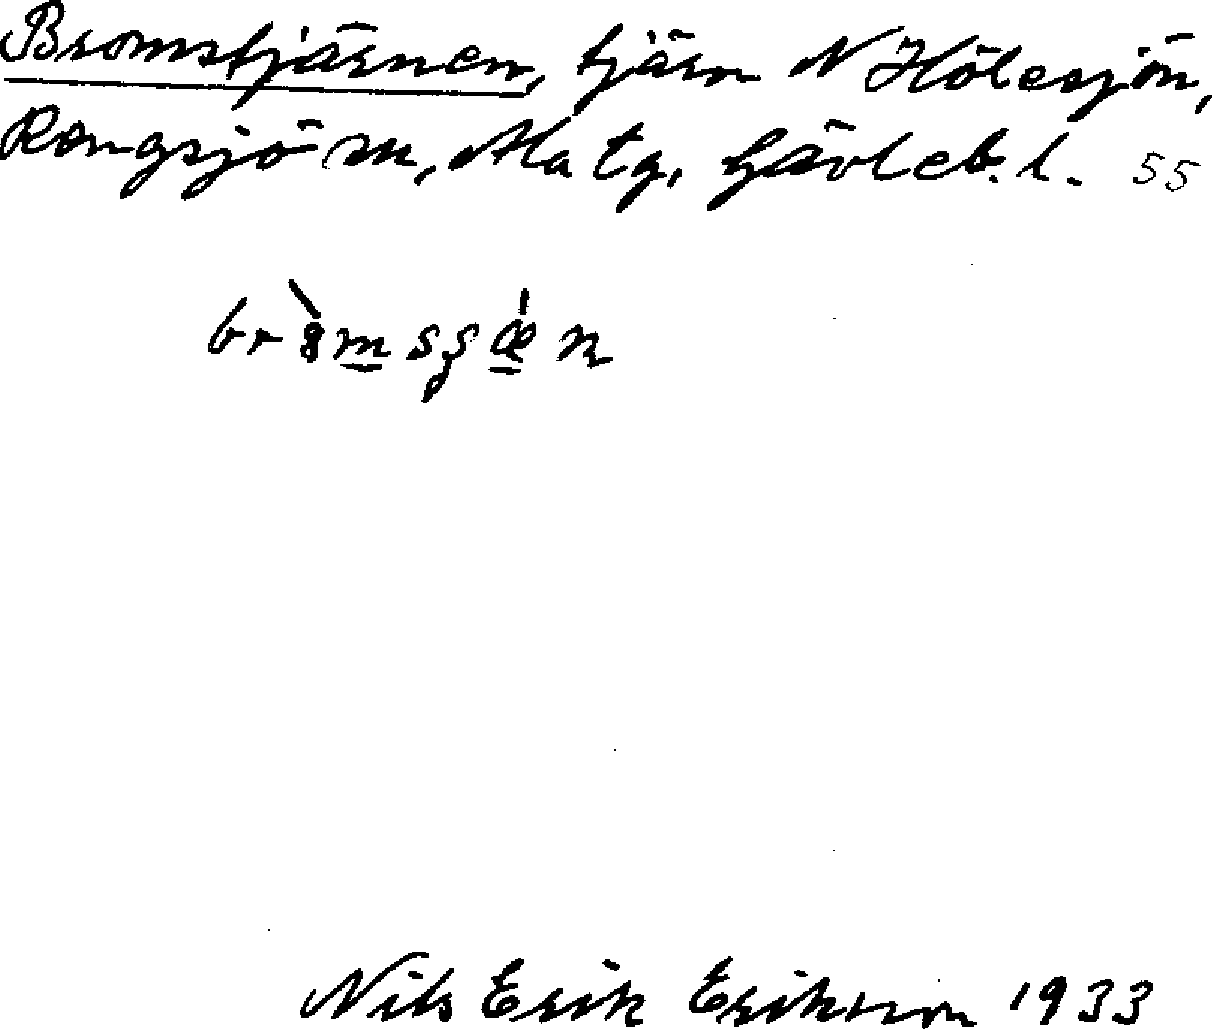 Bromstjärnen, tjärn N Hölesjön,
Rengsjö sn, Ala tg, Gävleb. l. 55
Nils Erik Eriksson 1933